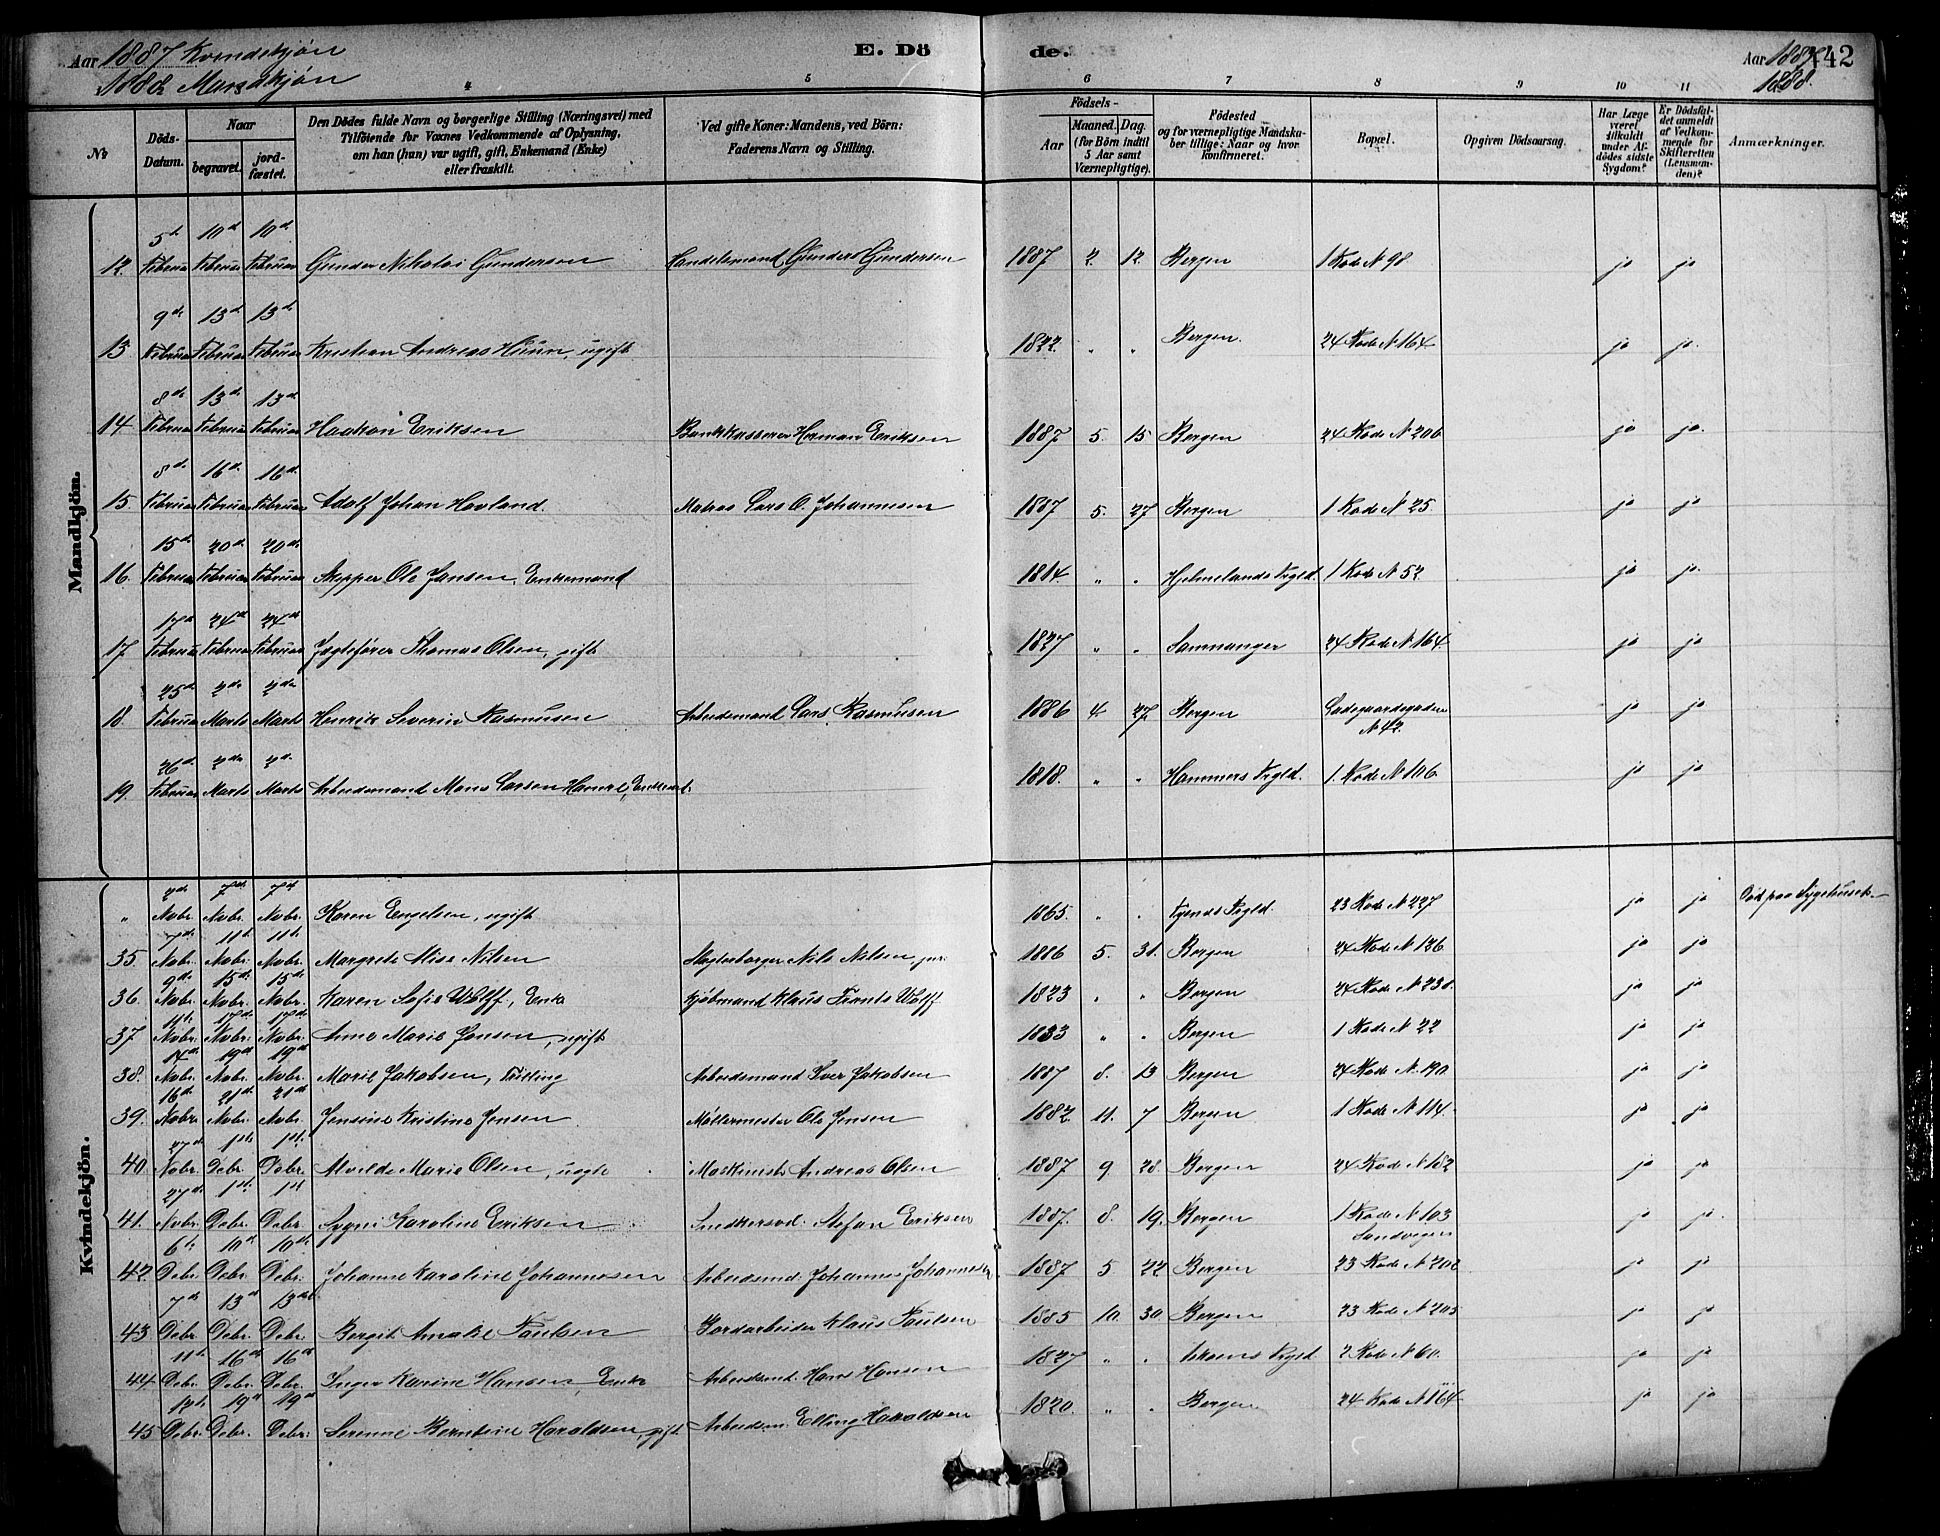 Aar 1887 Kvindekjøn E. Dö de. Aar 1887 142
1888 Mandkjøn 1888.
4 5 6 7 8 9 10 11
No Döds-Datum. Naar begravet. jordfæstet. Den Dödes fulde Navn og borgerlige Stilling (Næringsvei) med Tilföiende for Voxnes Vedkommende af Oplysning, om han (hun) var ugift, gift, Enkemand (Enke) eller fraskilt. Ved gifte Koner: Mandens, ved Börn: Faderens Navn og Stilling. Födsels- Aar Maaned. Dag. (for Börn indtil 5 Aar samt Værnepligtige). Födested og for værnepligtige Mandskaber tillige: Naar og hvor konfirmeret. Bopæl. Opgiven Dödsaarsag. Har Læge været tilkaldt under Afdödes sidste Sygdom? Er Dödsfaldet anmeldt af Vedkommende for Skifteretten (Lensmanden)? Anmærkninger.
Mandkjön.
5te 10de 10de
12 Februar Februar Februar Gunder Nikolai Gundersen Handelsmand Gunder Gundersen 1887 2. 12. Bergen 1 Rode N 98 ja ja
9de 13de 13de
13 Februar Februar Februar Kristian Andreas Huun, ugift 1822. " " Bergen. 24 Rode N 164 ja ja.
8de 13de 13de
14 Februar Februar Februar Haakon Eriksen Bankkasserer Herman Eriksen 1887 5. 15 Bergen 24 Rode N 206 ja ja.
8de 16de 16de
15. Februar Februar Februar Adolf Johan Hovland. Matros Lars O. Johannesen 1887 5. 27 Bergen 1 Rode N 25 ja ja
15de 20de 20de
16. Februar Februar Februar Skipper Ole Jansen, Enkemand 1814. " " Hjelmelands Prgld. 1 Rode N 52 ja ja.
17de 24de 24de
17 Februar Februar Februar Jægtefører Thomas Olsen, gift 1827 " " Samnanger 24 Rode N 164 ja ja
25de 2de 2de
18. Februar Marts Marts Henrik Severin Rasmusen Arbeidsmand Lars Rasmusen 1886 4. 27. Bergen Ladegaardsgaden ja ja
N 42.
26de 2de 2de.
19. Februar Marts Marts Arbeidsmand Mons Larsen Enkem. 1818. " " Hammers Prgld. 1. Rode N 106 ja ja
Kvindekjön.
2de 7de 7de
" Nobr. Nobr. Nobr. Karen Engelsen, ugift 1865. " " Prgld. 23 Rode N 227 ja ja Død paa Sygehuset.
7de 11te 11te
35. Nobr. Nobr. Nobr. Margrete Nilsen Nils Nilsen, jun. 1886 5. 31. Bergen 24 Rode N 126. ja ja
9de 15de 15de
36. Nobr. Nobr. Nobr. Karen Sofie Wolff, Enke Kjöbmand Klaus Wolff 1823 " " Bergen 24 Rode N 230. ja ja
11te 17de 17de
37 Nobr. Nobr. Nobr. Anne Marie Jensen, ugift 1833 " " Bergen 1 Rode N 22 ja ja
14de 19de 19de
38. Nobr. Nobr. Nobr. Marie Jakobsen, Tvilling Arbeidsmand Iver Jakobsen 1887 8. 13 Bergen 24 Rode N 190 ja ja
16de 21de 21de
39. Nobr. Nobr. Nobr. Jensine Kristine Jensen Møllermester Ole Jensen 1882. 11. 7 Bergen 1 Rode N 114. ja ja
27de 1ste 1ste
40 Nobr. Debr. Debr. Alvilde Marie Olsen, uægte Maskinist Andreas Olsen 1887 9 28. Bergen 24 Rode N 182 ja ja
27de 1ste 1ste
41. Nobr. Debr. Debr. Sygni Karoline Eriksen Snedkersvd. Stefan Eriksen 1887. 8. 19. Bergen 1 Rode N 103 ja ja
Sandvigen
6te 10de 10de
42. Debr. Debr. Debr. Johanne Karoline Johannesen Arbeidsmd. Johannes Johannesen 1887 5. 22 Bergen 23 Rode N 200 ja ja
7de 13de 13de
43 Debr. Debr. Debr. Bergit Amalie Paulsen Jordarbeider Klaus Paulsen 1885 10. 30. Bergen 23 Rode N 205 ja ja
11te 16de 16de
44. Debr. Debr. Debr. Inger Karine Hansen, Enke Arbeidsmd. Hans Hansen 1827 " " Askøens Prgld 2 Rode N 60. ja ja
12te 19de 19de
45 Debr. Debr. Debr. Serenne Berntine Haraldsen, gift Arbeidsm. Elling Haraldsen 1820. " " Bergen 24 Rode N 164 ja ja